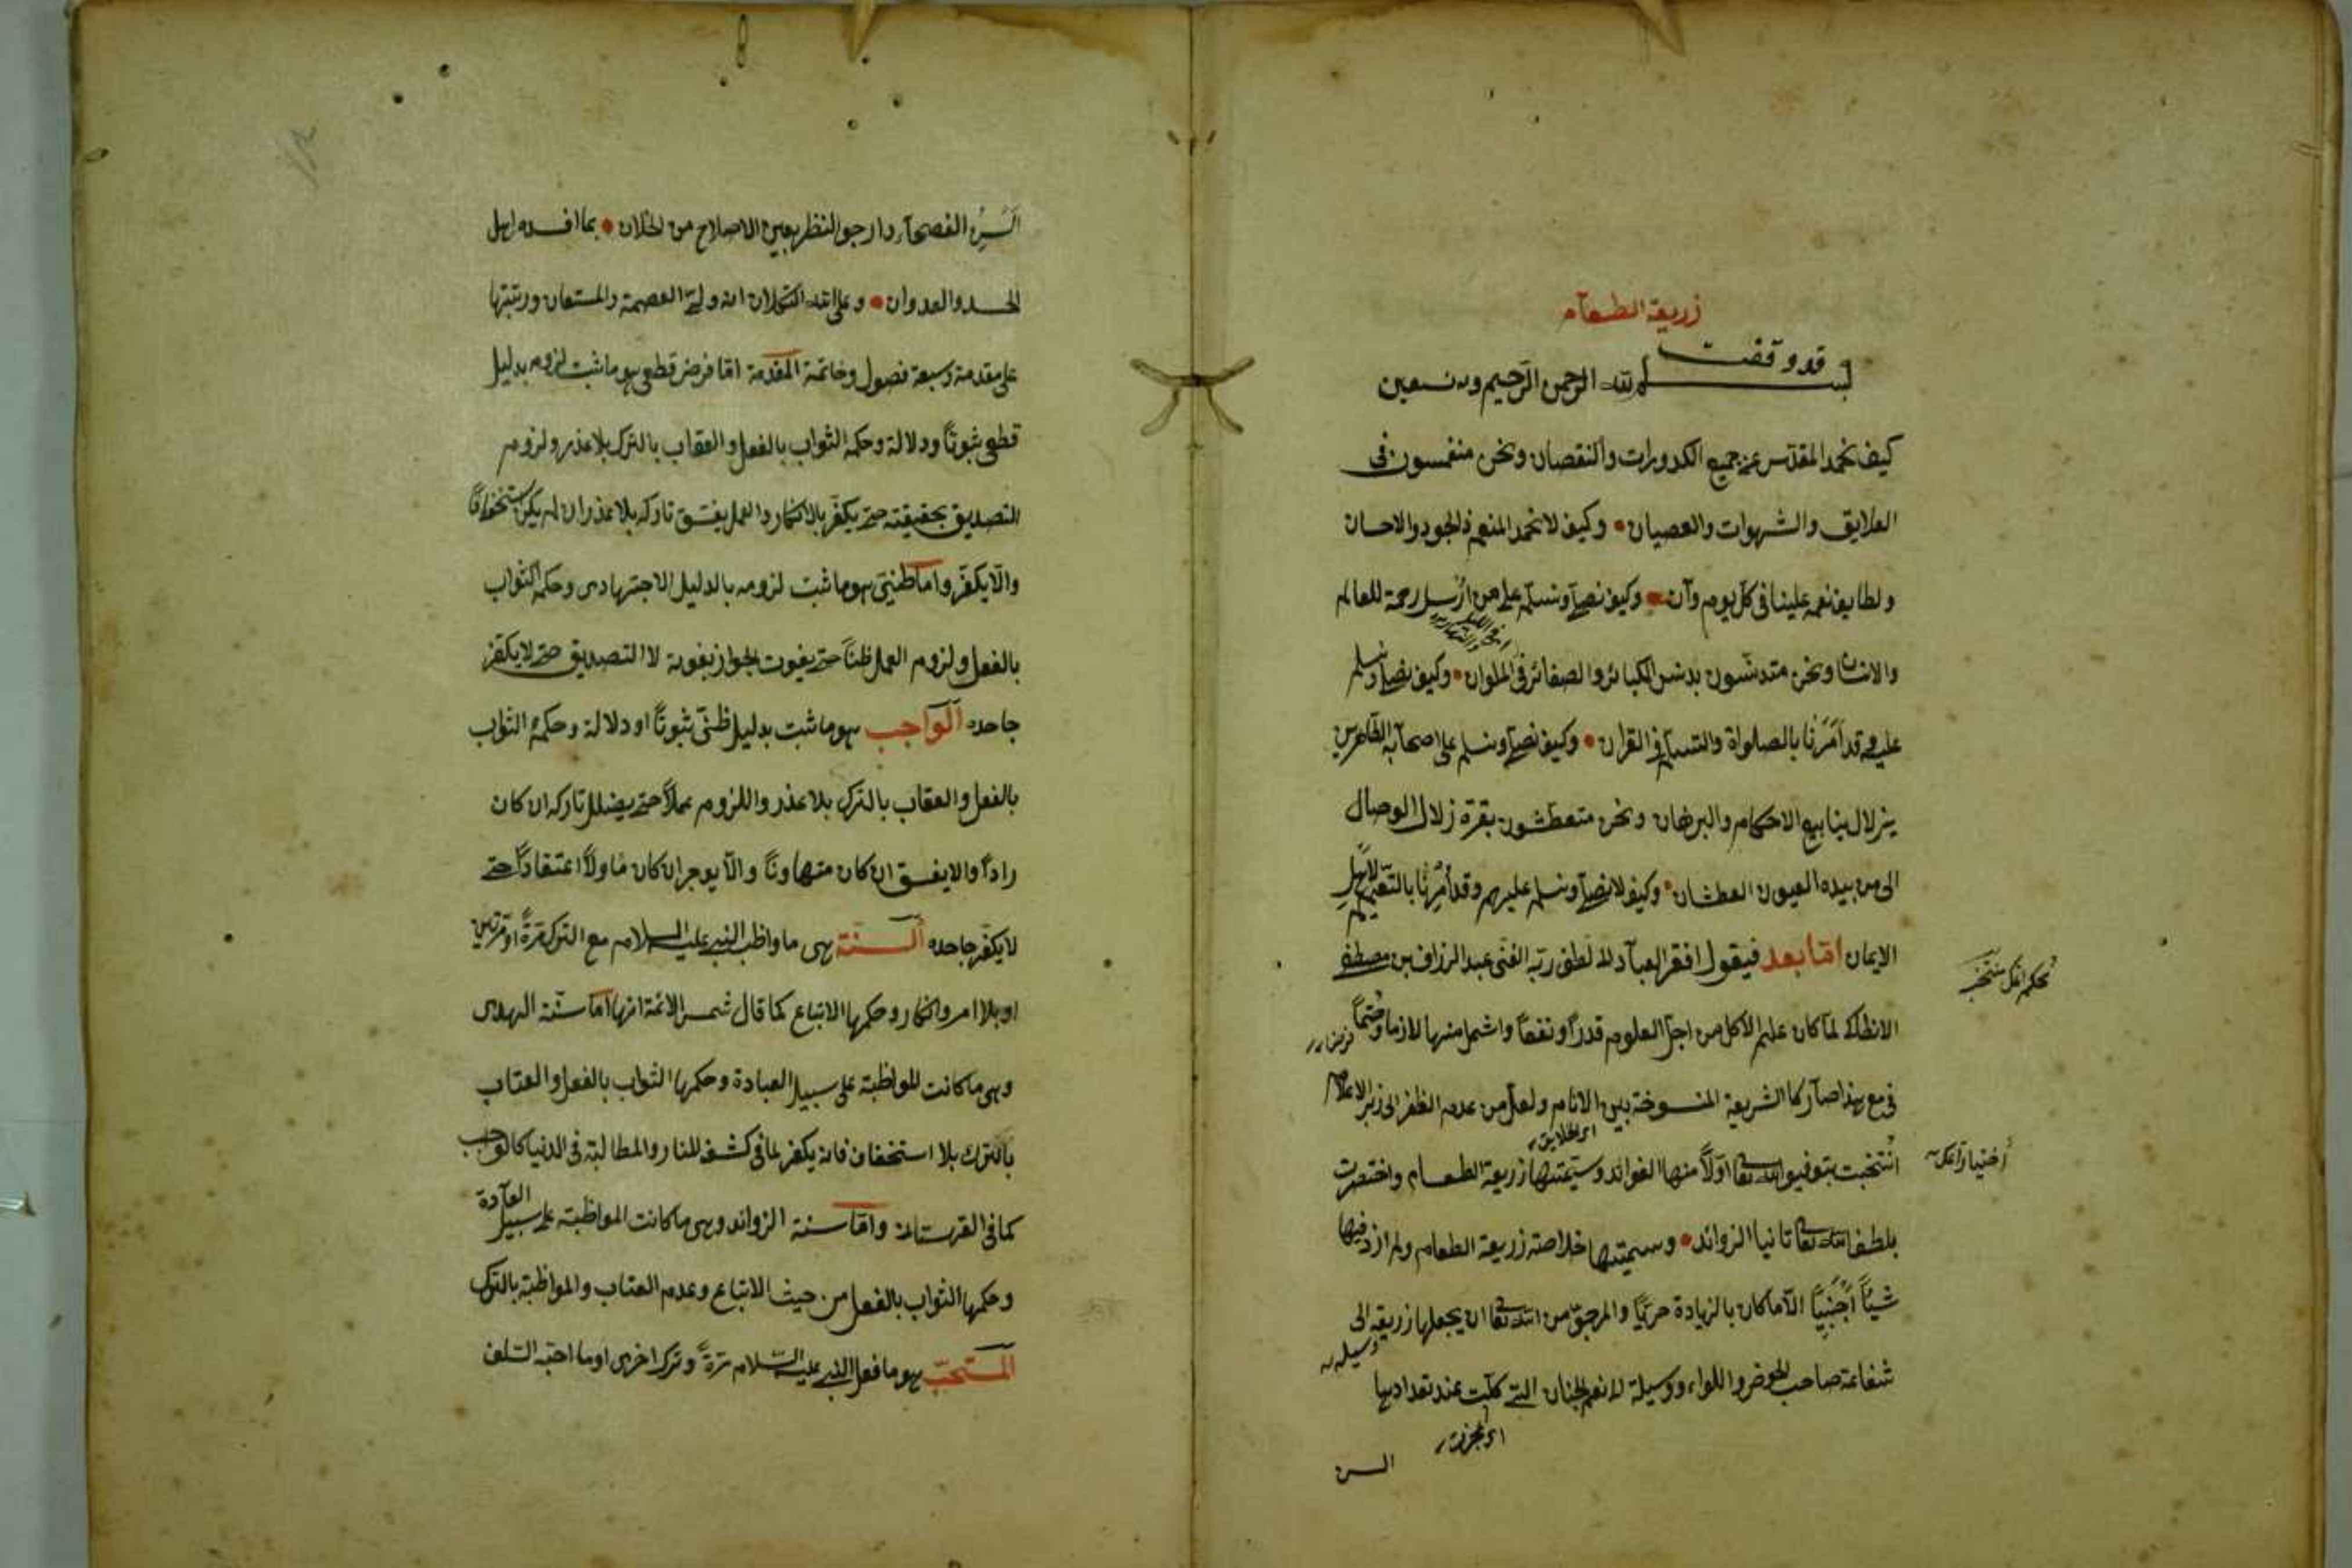 زريعة الطعام
قد وقفت
بسم الله الرحمن الرحيم وبه نستعين
كيف نحمد المقدس عن جميع الكدورات والنقصان ونحن منغمسون فى
العلايق والشهوات والعصيان • وكيف لا نحمد المنعم ذالجود والاحسان
ولطايف نعمه علينا فى كل يوم وآن • وكيف نصلى ونسلم على من ارسل رحمة للعالم
والانسان ونحن متدنسون بدنس الكبائر والصغائر فى الملوان • وكيف نصلى ونسلم
عليه وقد امرنا بالصلواة والتسليم فى القران • وكيف نصلى ونسلم على اصحابه الظاهرين
بزلال ينابيع الاحكام والبرهان ونحن متعطشون بقرة زلال الوصال
الى من بيده العيون العطشان • وكيف لا نصلى ونسلم عليهم وقد امرنا بالتعميم لاهل
الايمان اما بعد فيقول افقر العباد الى لطف ربه الغنى عبد الرزاق بن مصطفى
الانطاكى لما كان علم الاكل من اجل العلوم قدرا ونفعا واشمل منها لازما وحتما
فرض
فى مع هذا صار كالشريعة المنسوخة بين الانام ولعل من عدم الظفر الى زبر الاعلام
اى الخلايق
انتخبت بتوفيق الله تعا اولا منها الفوائد وسميتها زريعة الطعام واختصرت
بلطف الله تعا ثانيا الزوائد • وسميتها خلاصة زريعة الطعام ولم ازد فيها
شيئا اجنبيا الا ما كان بالزيادة حريا والمرجو من الله تعا ان يجعلها زريعة الى
وسيله
شفاعة صاحب الحوض واللواء ووسيلة الى نعم الجنان التى كلت عند تعدادها
اى عجزت
السن
السن الفصحاء وارجو النظر بعين الاصلاح من الخلان • بما افسده اهل
الحسد والعدوان • وعلى الله التكلان انه ولى العصمة والمستعان ورتبتها
على مقدمة وسبعة فصول وخاتمة المقدمة اما فرض قطعى هو ما ثبت لزومه بدليل
قطعى ثبوتا ودلالة وحكمه الثواب بالفعل والعقاب بالترك بلا عذر ولزوم
التصديق بحقيقته حتى يكفر بالانكار والعمل يفسق تاركه بلا عذر ان لم يكن استخفافا
والا يكفر واما ظنى هو ما ثبت لزومه بالدليل الاجتهادى وحكمه الثواب
بالفعل ولزوم العمل ظنا حتى يفوت الجواز بفوته لا التصديق حتى لا يكفر
جاحده الواجب هو ما ثبت بدليل ظنى ثبوتا او دلالة وحكمه الثواب
بالفعل والعقاب بالترك بلا عذر واللزوم عملا حتى يضلل تاركه ان كان
رادا والا يفسق ان كان متهاونا والا يوجر ان كان ماولا اعتقادا حتى
لا يكفر جاحده السنة هى ما واظب النبى عليه السلام مع الترك مرة او مرتين
او بلا امر وانكار وحكمها الاتباع كما قال شمس الائمة انها اما سنة الهدى
وهى ما كانت المواظبة على سبيل العبادة وحكمها الثواب بالفعل والعتاب
بالترك بلا استخفاف فانه يكفر لما فى كشف المنار والمطالبة فى الدنيا كالواجب
كما فى القهستانى واما سنة الزوائد وهى ما كانت المواظبة على سبيل العادة
وحكمها الثواب بالفعل من حيث الاتباع وعدم العتاب والمواظبة بالترك
المستحب هو ما فعل النبى عليه السلام مرة وترك اخرى او ما احبه السلف